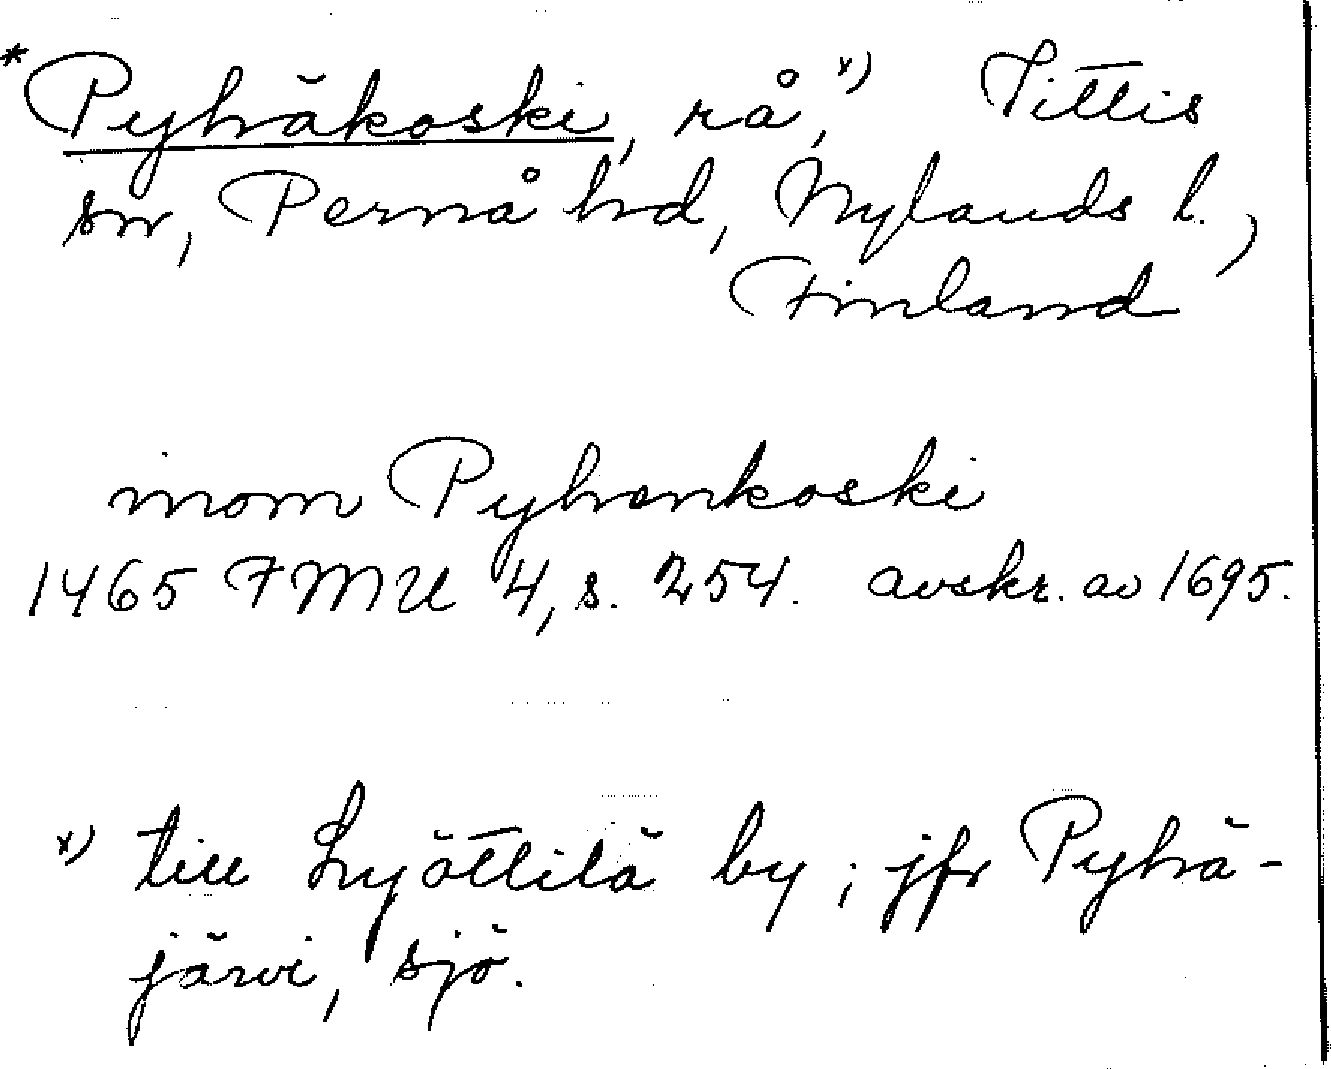 *Pyhäkoski, rå,x) Tittis
sn, Pernå hd, Nylands l.,
Finland
inom Pyhenkoski
1465 FMU 4, s. 254. avskr. av 1695.
x) till Lyöttilä by; jfr Pyhä-
järvi, sjö.